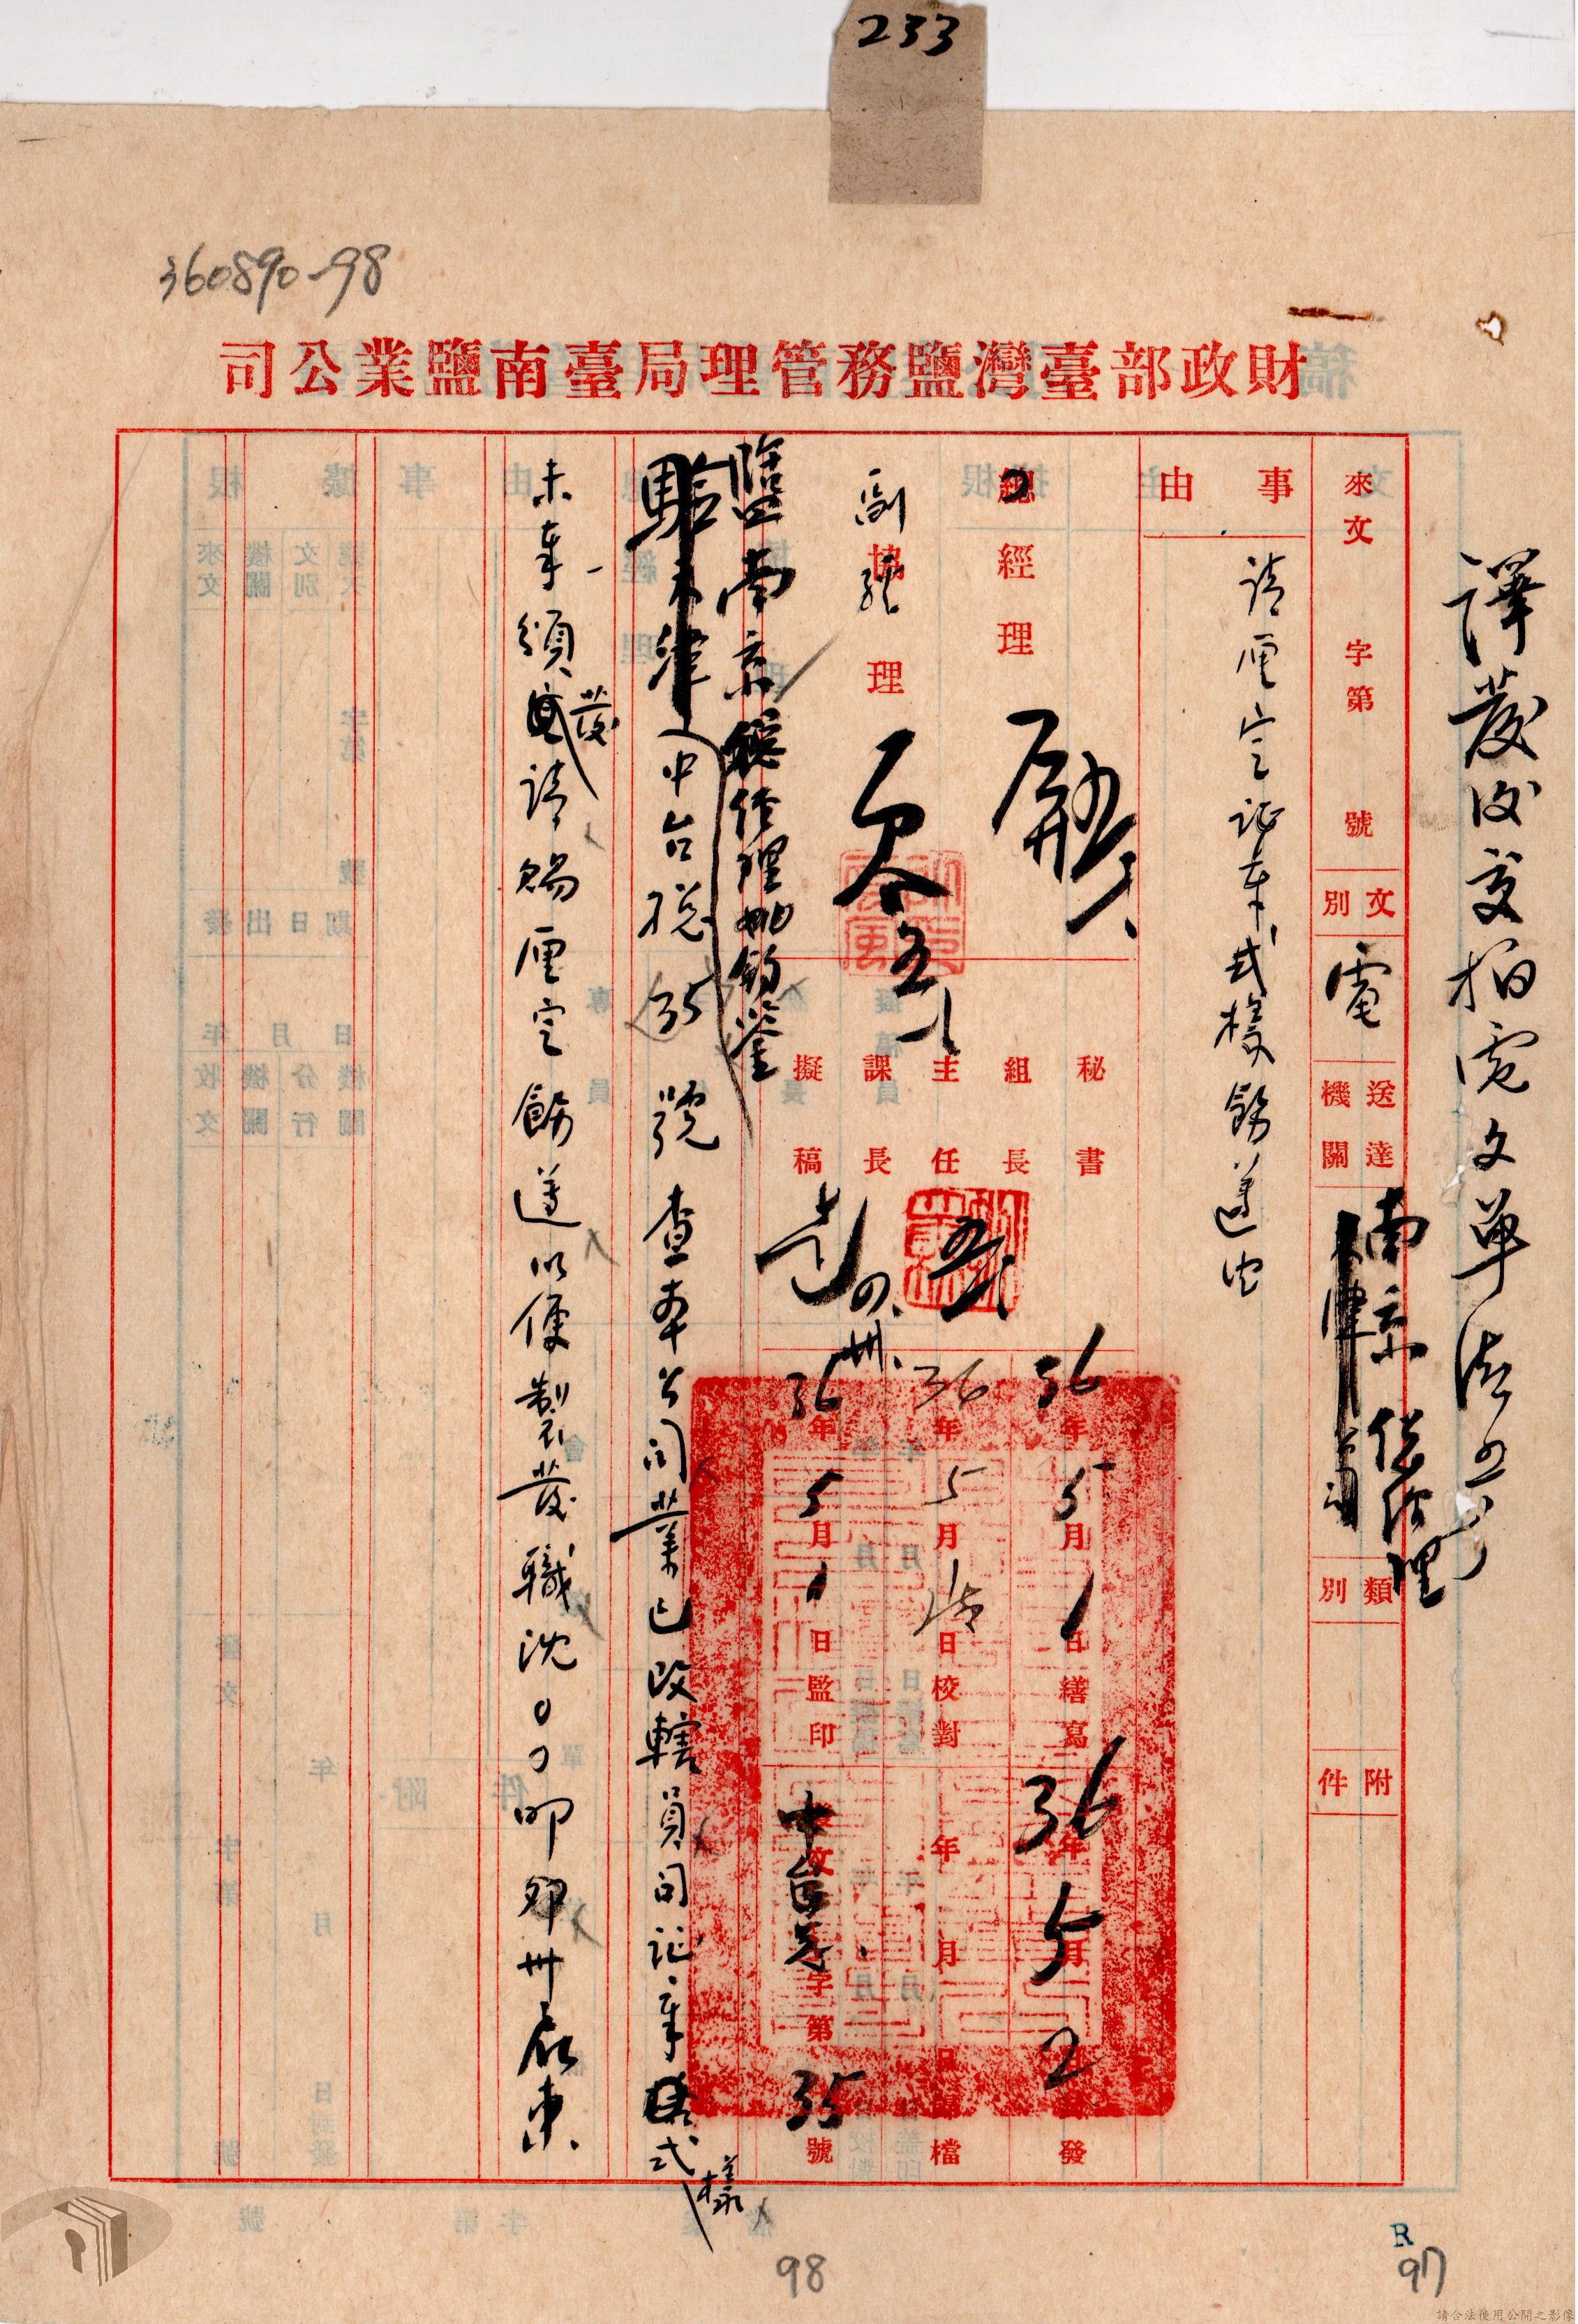 233
360890-98
財政部臺灣鹽務管理局臺南鹽業公司
譯發後交拍電文單
來文 字第 號
文別 電
送達機關 南京 總經理
類別
附件
事由 請厘定証章式樣飭遵由
總經理
副經理
協理
秘書
組長
主任
課長
擬稿
36年5月1日繕寫
36年5月 日校對
36年5月1日監印
36年5月2 發
年 月 日 檔
文 字第35號
鹽南京總經理 鈞鑒
中台總35號 查本公司業已改轄員司証章式樣
未奉頒發 請賜厘定飭遵以便製發職沈〇〇叩卯卅
98
R
97
請合法使用公開之影像